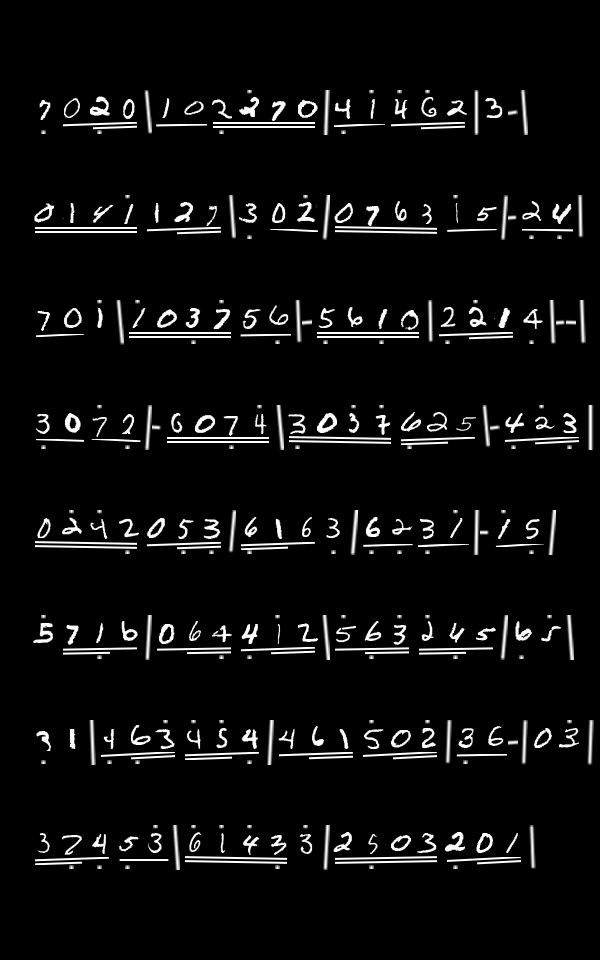 7 0 2 0 | 1 0 2 2 7 0 | 4 1 4 6 2 | 3 - |
0 1 4 1 1 2 7 | 3 0 2 | 0 7 6 3 1 5 | - 2 4 |
7 0 1 | 1 0 3 7 5 6 | - 5 6 1 0 | 2 2 1 4 | - - |
3 0 7 2 | - 6 0 7 4 | 3 0 3 7 6 2 5 | - 4 2 3 |
0 2 4 2 0 5 3 | 6 1 6 3 | 6 2 3 1 | - 1 5 |
5 7 1 6 | 0 6 4 4 1 2 | 5 6 3 2 4 5 | 6 5 |
3 1 | 4 6 3 4 5 4 | 4 6 1 5 0 2 | 3 6 - | 0 3 |
3 7 4 5 3 | 6 1 4 3 3 | 2 5 0 3 2 0 1 |